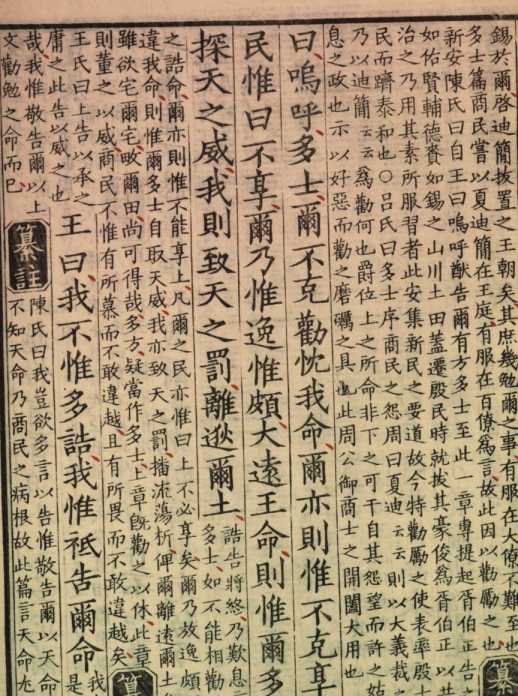 錫於爾啓迪簡拔置之王朝矣其庶幾勉爾之事有服在大僚不難至也
多士篇商民嘗以夏迪簡在王庭有服在百僚爲言故此因以勸勵之也纂
新安陳氏曰自王曰嗚呼猷告爾有方多士至此一章專提起胥伯正告之
如佑賢輔德賚如錫之山川土田蓋遷殷民時就拔其豪俊爲胥伯正以其
治之乃用其素所服習者此安集新民之要道故今特勸勵之使表率殷
民而躋泰和也○呂氏曰多士序商民之怨周曰夏迪云云則以大義裁
乃以迪簡云云爲勸何也爵位上之所命非下之可干自其怨望而許之姑
息之政也示以好惡而勸之磨礪之具也此周公御商士之開闔大用也
曰嗚呼多士爾不克勸忱我命爾亦則惟不克享
民惟曰不享爾乃惟逸惟頗大遠王命則惟爾多
探天之威我則致天之罰離逖爾土
誥告將終乃歎息
多士如不能相勸
之誥命爾亦則惟不能享上凡爾之民亦惟曰上不必享矣爾乃放逸頗
違我命則惟爾多士自取天威我亦致天之罰播流蕩析俾爾離遠爾土
雖欲宅爾宅畋爾田尚可得哉多方疑當作多士上章既勸之以休此章
則董之以威商民不惟有所慕而不敢違越且有所畏而不敢違越矣纂
王氏曰上告以承之
庸之此告以威之也
王曰我不惟多誥我惟祗告爾命
我
是
哉我惟敬告爾以上
文勸勉之命而已
纂註
陳氏曰我豈欲多言以告惟敬告爾以天命
不知天命乃商民之病根故此篇言天命尤